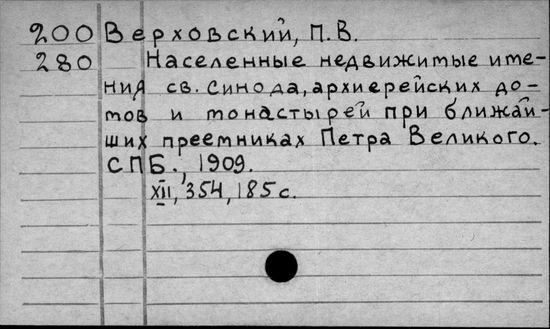 200 Верховский, П.В.
280 Населенные недвижитые име-
ния св. Синода, архиерейских до-
мов и монастырей при ближай-
ших преемниках Петра Великого.
СПБ., 1909.
XII, 354, 185 с.